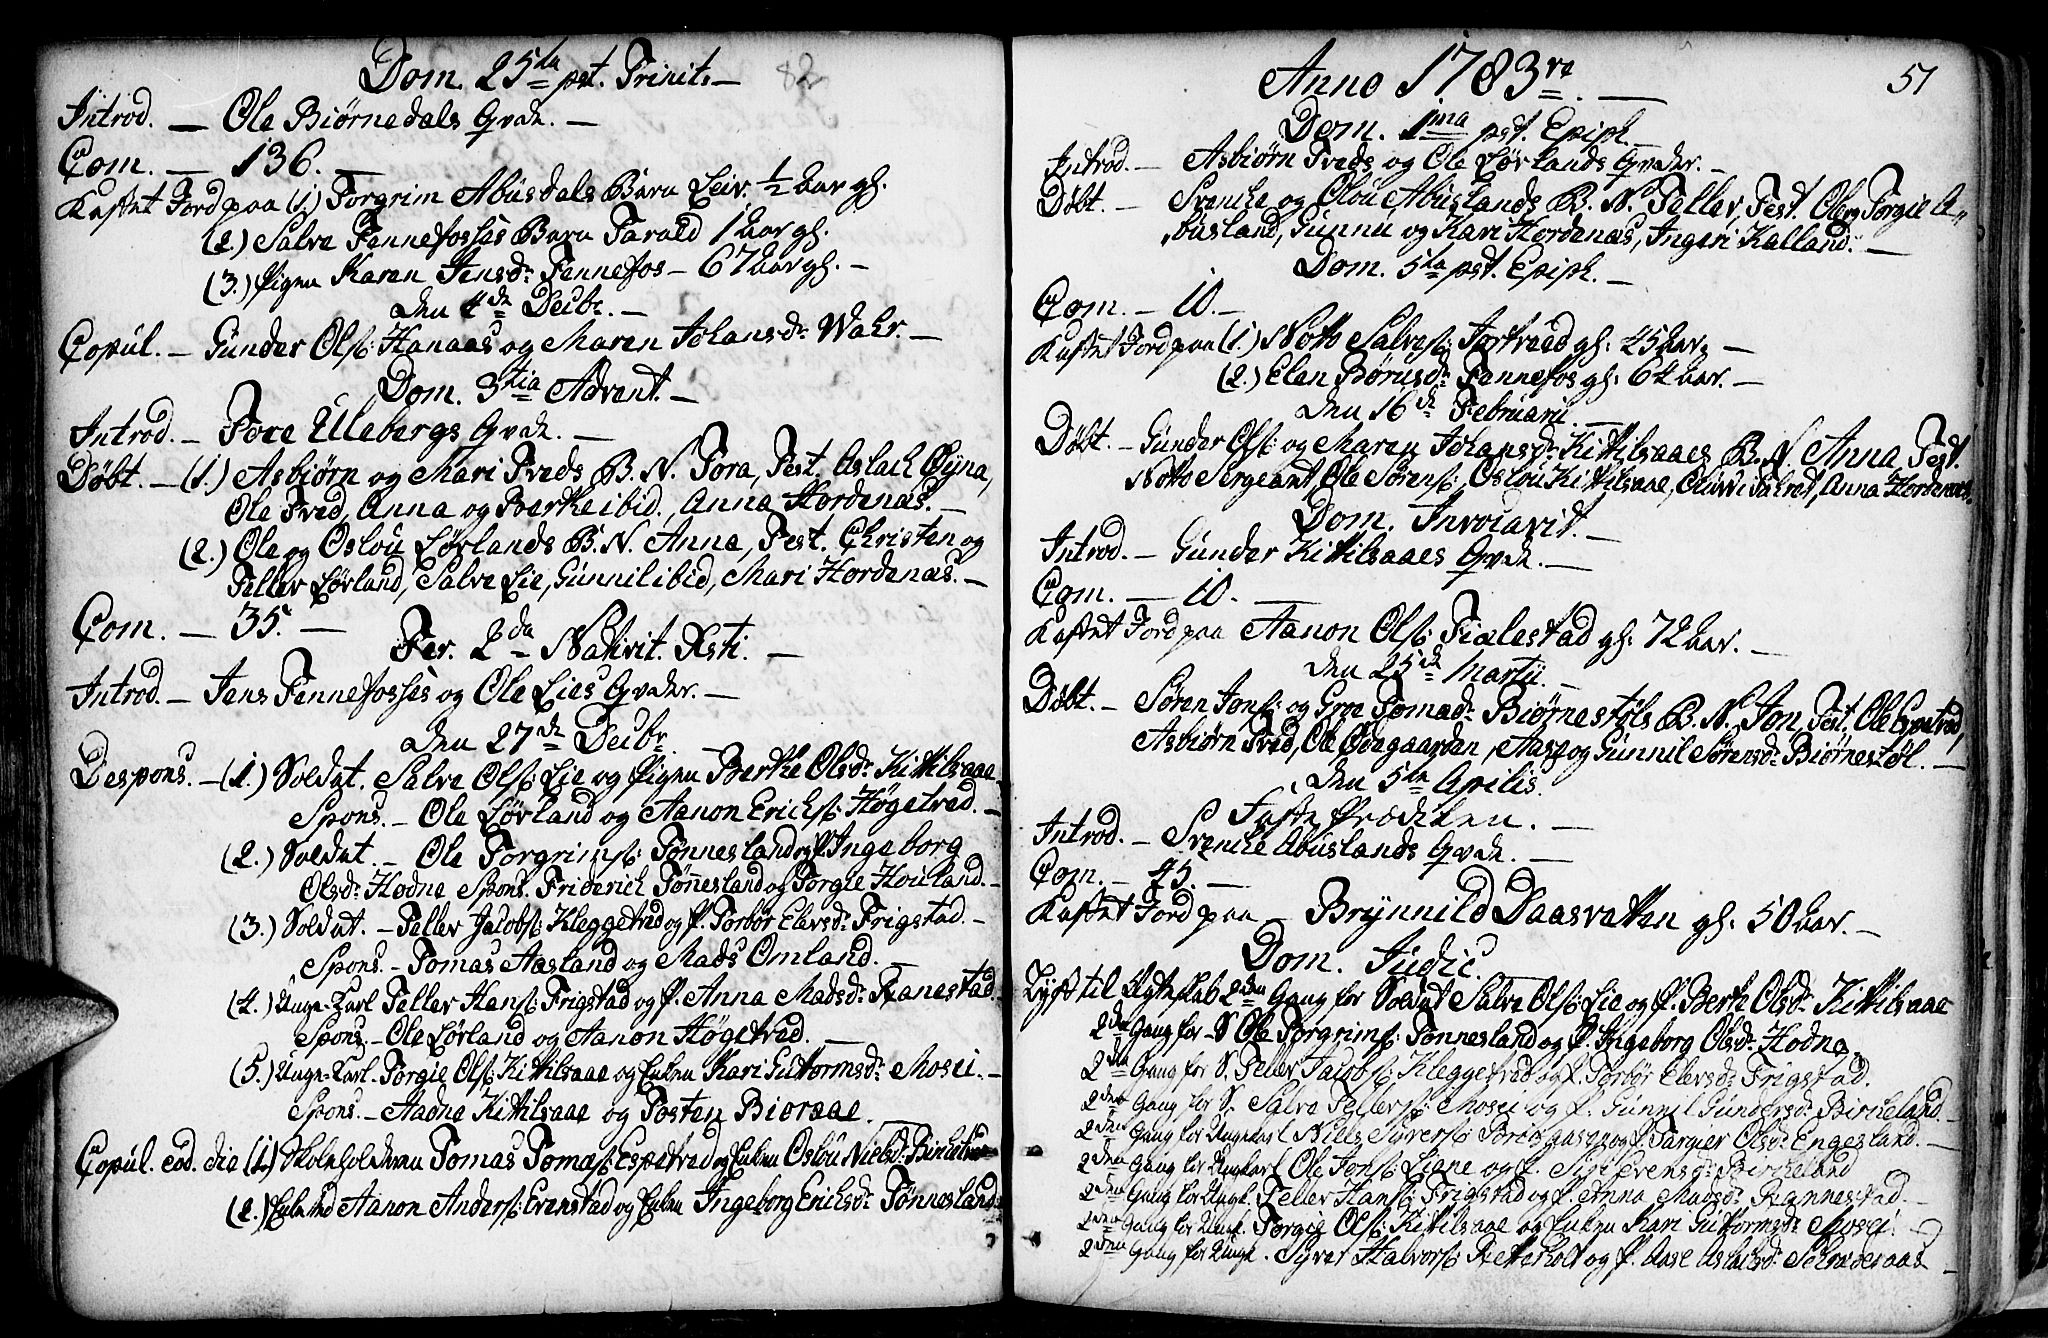 Dom. 25ta pst. Trinit. —
82
Introd. — Ole Biørnedals Qvde. —
Com. — 136. —
Kastet Jord paa (1.) Torgrim Abusdals Barn Leiv. ½ Aar gl.
(2.) Salve Fennefosses Barn Tarald 1 Aar gl.
(3.) Pigen Karen Jensdr. Fennefos — 67 Aar gl. —
Den 4de Decbr. —
Copul. — Gunder Ols: Hanaas og Maren Johansdr. Wahr. —
Dom. 3tia Advent. —
Introd. — Tore Ullebergs Qvde. —
Døbt. — (1.) Asbiørn og Mari Treds B. N. Tora, Test. Aslach Øyna,
Ole Tred, Anna og Berthe ibid., Anna Hordenæs. —
(2.) Ole og Oslou Lørlands B. N. Anne, Test. Christen og
Tellev Lørland, Salve Lie, Gunnil ibid, Mari Hordenæs. —
Com. — 35. —
Fer. 2da Nativit. Xsti. —
Introd. — Jens Fennefosses og Ole Lies Qvder. —
Den 27de Decbr. —
Despons. — (1.) Soldat. Salve Ols: Lie og Pigen Berthe Olsdr. Kittilsaae —
Spons. — Ole Lørland og Aanon Erichs: Høgetved. —
(2.) Soldat. — Ole Torgrims: Tønnesland og P. Ingeborg
Olsdr. Hodne Spons. Friderich Tønesland og Torgie Houland. —
(3.) Soldat. — Tellev Jacobs: Kleggetved og P. Torbør Elevsdr. Frigstad. —
Spons. — Tomas Aasland og Mads Omland. —
(4.) Unge-Karl Tellev Hans: Frigstad og P. Anna Madsdr. Rannestad. —
Spons. — Ole Lørland og Aanon Høgetved. —
(5.) Unge-Karl. Torgie Ols: Kittilsaae og Enken Kari Guttormsdr. Mosei. —
Spons. — Aadne Kittilsaae og Tosten Bioraae.
Copul. eod. die (1.) Skoleholderen Tomas Tomas: Espetved og Enken Oslou Nielsdr.
(2.) Enkemd Aanon Anders: Evenstad og Enken Ingeborg Erichsdr. Tønnesland
Anno 1783re. —
51
Dom. 1ma pst. Epiph. —
Introd. — Asbiørn Treds og Ole Lørlands Qvder. —
Døbt. — Svenche og Olou Abuslands B. N. Tellev, Test. Ole og Torgie A-
busland, Gunnu og Kari Hordenæs, Ingeri Kalland. —
Dom. 5ta pst. Epiph. —
Com. — 10. —
Kastet Jord paa (1.) Notto Salves: Tortved gl. 45 Aar. —
(2.) Elen Børusdr. Fennefos gl. 64 Aar. —
Den 16de Februarii. —
Døbt. — Gunder Ols: og Maren Johansdr. Kittilsaaes B. N. Anna Test.
Notto Sergeant, Ole Sørens: Oslou Kittilsaae, Anna Hordenæs.
Dom. Invocavit. —
Introd. — Gunder Kittilsaaes Qvde. —
Com. — 10. —
Kastet Jord paa Aanon Ols: Fialestad gl. 72 Aar. —
Den 25de Martii. —
Døbt. — Søren Jons: og Groe Tomasdr. Biørnestøls B. N. Jon, Test. Ole
Asbiørn Tred, Ole Ødegaarden, Aase og Gunnil Sørensdr. Biørnestøl. —
Den 5te Aprilis.
Faste Prædiken. —
Introd. — Svenche Abuslands Qvde. —
Com. — 45. —
Kastet Jord paa — Brynnild Daasvatten gl. 50 Aar. —
Dom. Judic.
Lyst til Ægteskab 2den Gang for Soldat Salve Ols: Lie og P. Berthe Olsdr. Kittilsaae
2den Gang for S. Ole Torgrims: Tønnesland og P. Ingeborg Olsdr. Hodne.
2den Gang for S. Tellev Jacobs: Kleggetved og P. Torbør Elevsdr. Frigstad.
2den Gang for S. Salve Tellevs: Mosei og P. Gunnil Gundersdr. Birkeland. —
2den Gang for Ungekarl Niels Syvers: og P. Targier Olsdr. Engesland. —
2den Gang for Ungkarl Ole Jons: Liene og P. Siri Evensdr. Birkeland
2den Gang for Ungk. Tellev Hans: Frigstad og P. Anna Madsdr. Rannestad. —
2den Gang for Ungk. Torgie Ols: Kittilsaae og Enken Kari Guttormsdr. Mosei. —
2den Gang for Ungk. Syver Halvors: og P. Aase Aslachsdr. —